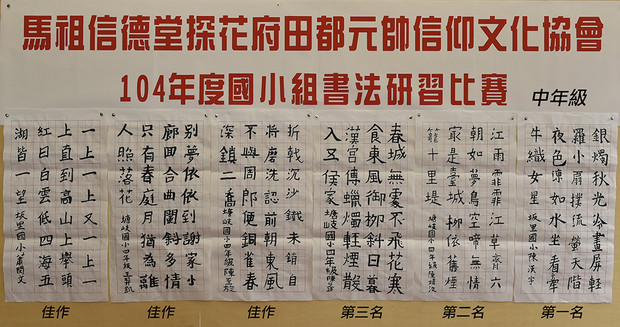 馬祖信德堂探花府田都元帥信仰文化協會
104年度國小組書法研習比賽
中年級
銀燭秋光冷畫屏輕
羅小扇撲流螢天階
夜色涼如水坐看牽
牛織女星 坂里國小陳漢宇
江雨霏霏江草齊六
朝如夢鳥空啼無情
最是臺城柳依舊煙
籠十里堤 塘岐國小四年級陳
春城無處不飛花寒
食東風御柳斜日暮
漢宮傳蠟燭輕煙散
入五侯家 塘岐國小四年級陳
折戟沉沙鐵未銷自
將磨洗認前朝東風
不與周郎便銅雀春
深鎖二喬 塘岐國小四年級陳
別夢依依到謝家小
廊回合曲闌斜多情
只有春庭月猶為離
人照落花 塘岐國小四年級
一上一上又一上一
上直到高山上舉頭
紅日白雲低四海五
湖皆一望 坂里國小蕭閔文
佳作 佳作 佳作 第三名 第二名 第一名